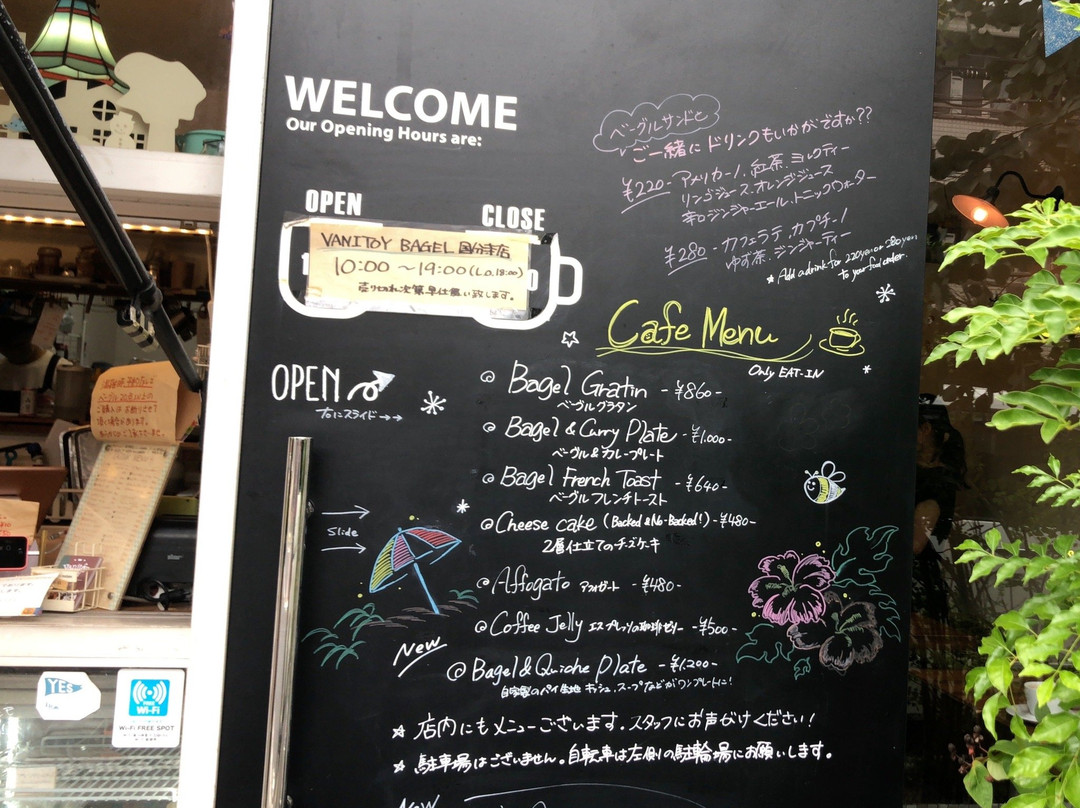 WELCOME
Our Opening Hours are:
OPEN
CLOSE
VANITOY BAGEL 国分寺店
10:00 ~ 19:00 (L.o.18:00)
売り切れ次第早仕舞い致します。
ベーグルサンドと
ご一緒にドリンクもいかがですか??
¥220- アメリカーノ、紅茶、ミルクティー
リンゴジュース、オレンジジュース
辛口ジンジャーエール、トニックウォーター
¥280- カフェラテ、カプチーノ
ゆず茶、ジンジャーティー
* Add a drink for 220yen or 280yen
to your food order.
Cafe Menu
Only EAT-IN
OPEN
右にスライド→→
Slide
◎ Bagel Gratin - ¥860-
ベーグルグラタン
◎ Bagel & Curry Plate - ¥1,000-
ベーグル&カレープレート
◎ Bagel French Toast - ¥640-
ベーグルフレンチトースト
◎ Cheese cake (Backed & No-Backed!) - ¥480-
2層仕立てのチーズケーキ
◎ Affogato アフォガート - ¥480-
◎ Coffee Jelly エスプレッソの珈琲ゼリー - ¥500-
New
◎ Bagel & Quiche Plate - ¥1,200-
自家製のパイ生地 キッシュ、スープなどがワンプレートに!
☆ 店内にもメニューございます。スタッフにお声がけください!
☆ 駐車場はございません。自転車は左側の駐輪場にお願いします。
New
YES
FREE
Wi-Fi
Wi-Fi FREE SPOT